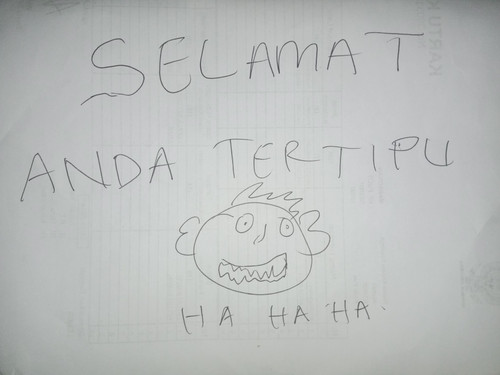 SELAMAT
ANDA TERTIPU
HA HA HA.